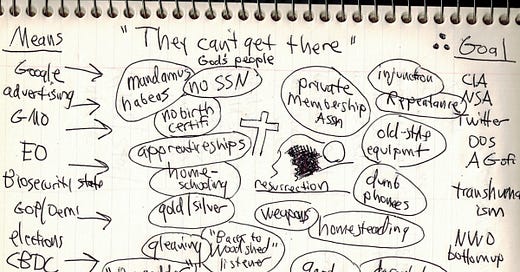 Means
"They can't get there"
∴ Goal
God's people
Google
advertising
GMO
EO
Biosecurity state
GOP/Dems
elections
CBDC
mandamus
habeus
no SSN
no birth
certifi
apprenticeships
home-
schooling
gold/silver
gleaning
"Back to
Woodshed"
listener
private
membership
Assn
resurrection
weapons
homesteading
injunction
Repentance
old-style
equipmt
dumb
phones
CIA
NSA
Twitter
DOS
AG ofi
transhuman
ism
NWO
bottom up